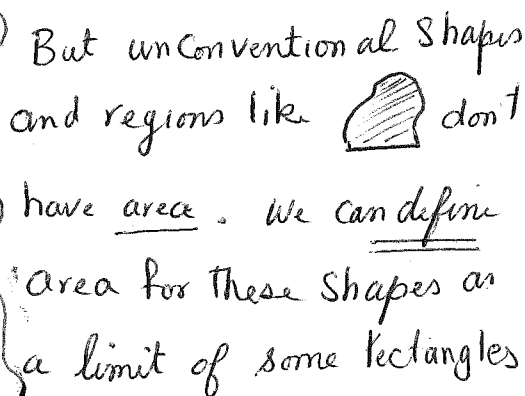 But unconventional shapes
and regions like don't
have area. We can define
area for these shapes as
a limit of some rectangles